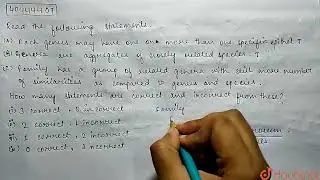 40444437
Read the following statements.
(A) Each genus may have one or more than one specific epithet T
(B) Genera are aggregates of closely related species T
(C) Family has a group of related genera with still more number
of similarities compared to genus and species
How many statements are correct and incorrect from these?
(1) 3 correct, 0 incorrect
(2) 2 correct, 1 incorrect
(3) 1 correct, 2 incorrect
(4) 0 correct, 3 incorrect
Family
doubtnut